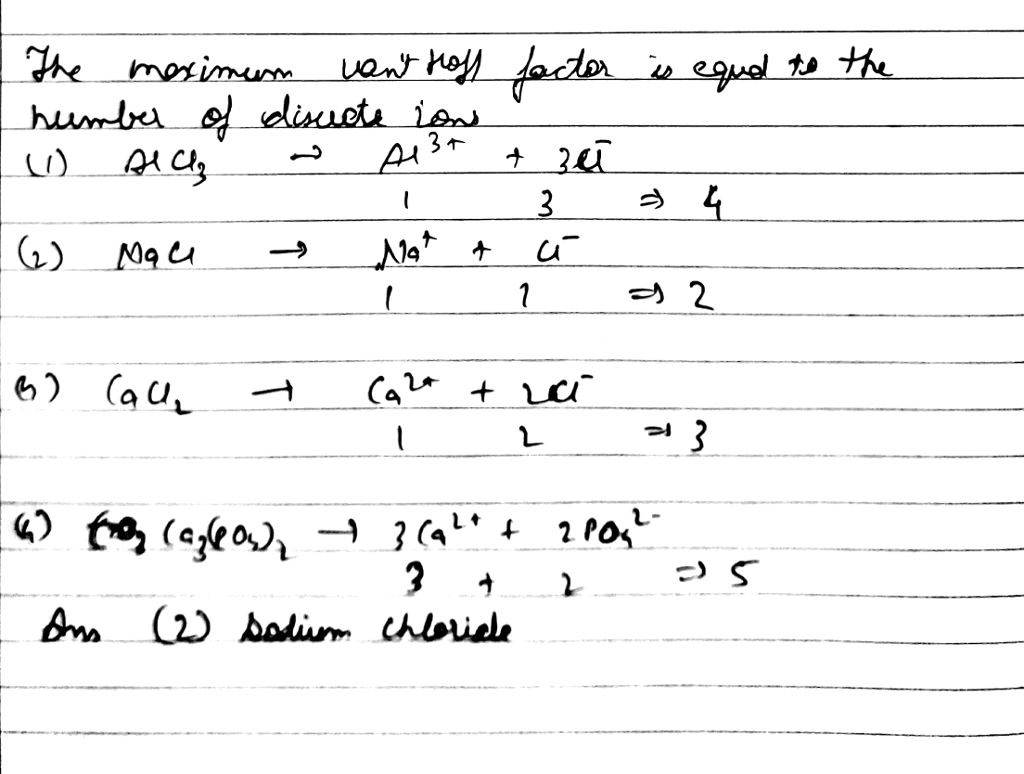 The maximum van't Hoff factor is equal to the
number of discrete ions
(1) AlCl₃ → Al³⁺ + 3Cl⁻
1 3 ⇒ 4
(2) NaCl → Na⁺ + Cl⁻
1 1 ⇒ 2
(3) CaCl₂ → Ca²⁺ + 2Cl⁻
1 2 ⇒ 3
(4) Ca₃(PO₄)₂ → 3Ca²⁺ + 2PO₄²⁻
3 + 2 ⇒ 5
Ans (2) Sodium chloride